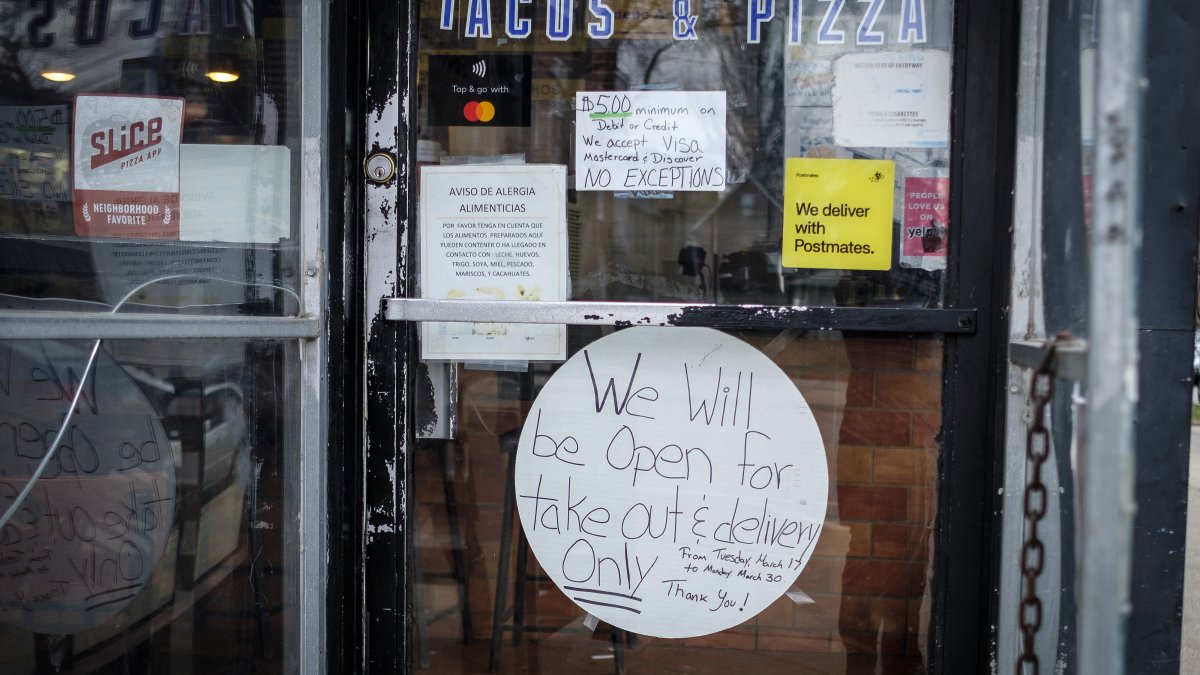 TACOS & PIZZA
Tap & go with
$5.00 minimum on
Debit or Credit
We accept Visa
Mastercard & Discover
NO EXCEPTIONS
SLICE
PIZZA APP
NEIGHBORHOOD
FAVORITE
AVISO DE ALERGIA
ALIMENTICIAS
POR FAVOR TENGA EN CUENTA QUE
LOS ALIMENTOS PREPARADOS AQUÍ
PUEDEN CONTENER O HA LLEGADO EN
CONTACTO CON: LECHE, HUEVOS,
TRIGO, SOYA, MIEL, PESCADO,
MARISCOS, Y CACAHUATES.
Postmates
We deliver
with
Postmates.
PEOPLE
LOVE US
ON
yelp
We Will
be Open for
take out & delivery
Only
From Tuesday, March 17
to Monday March 30.
Thank You!